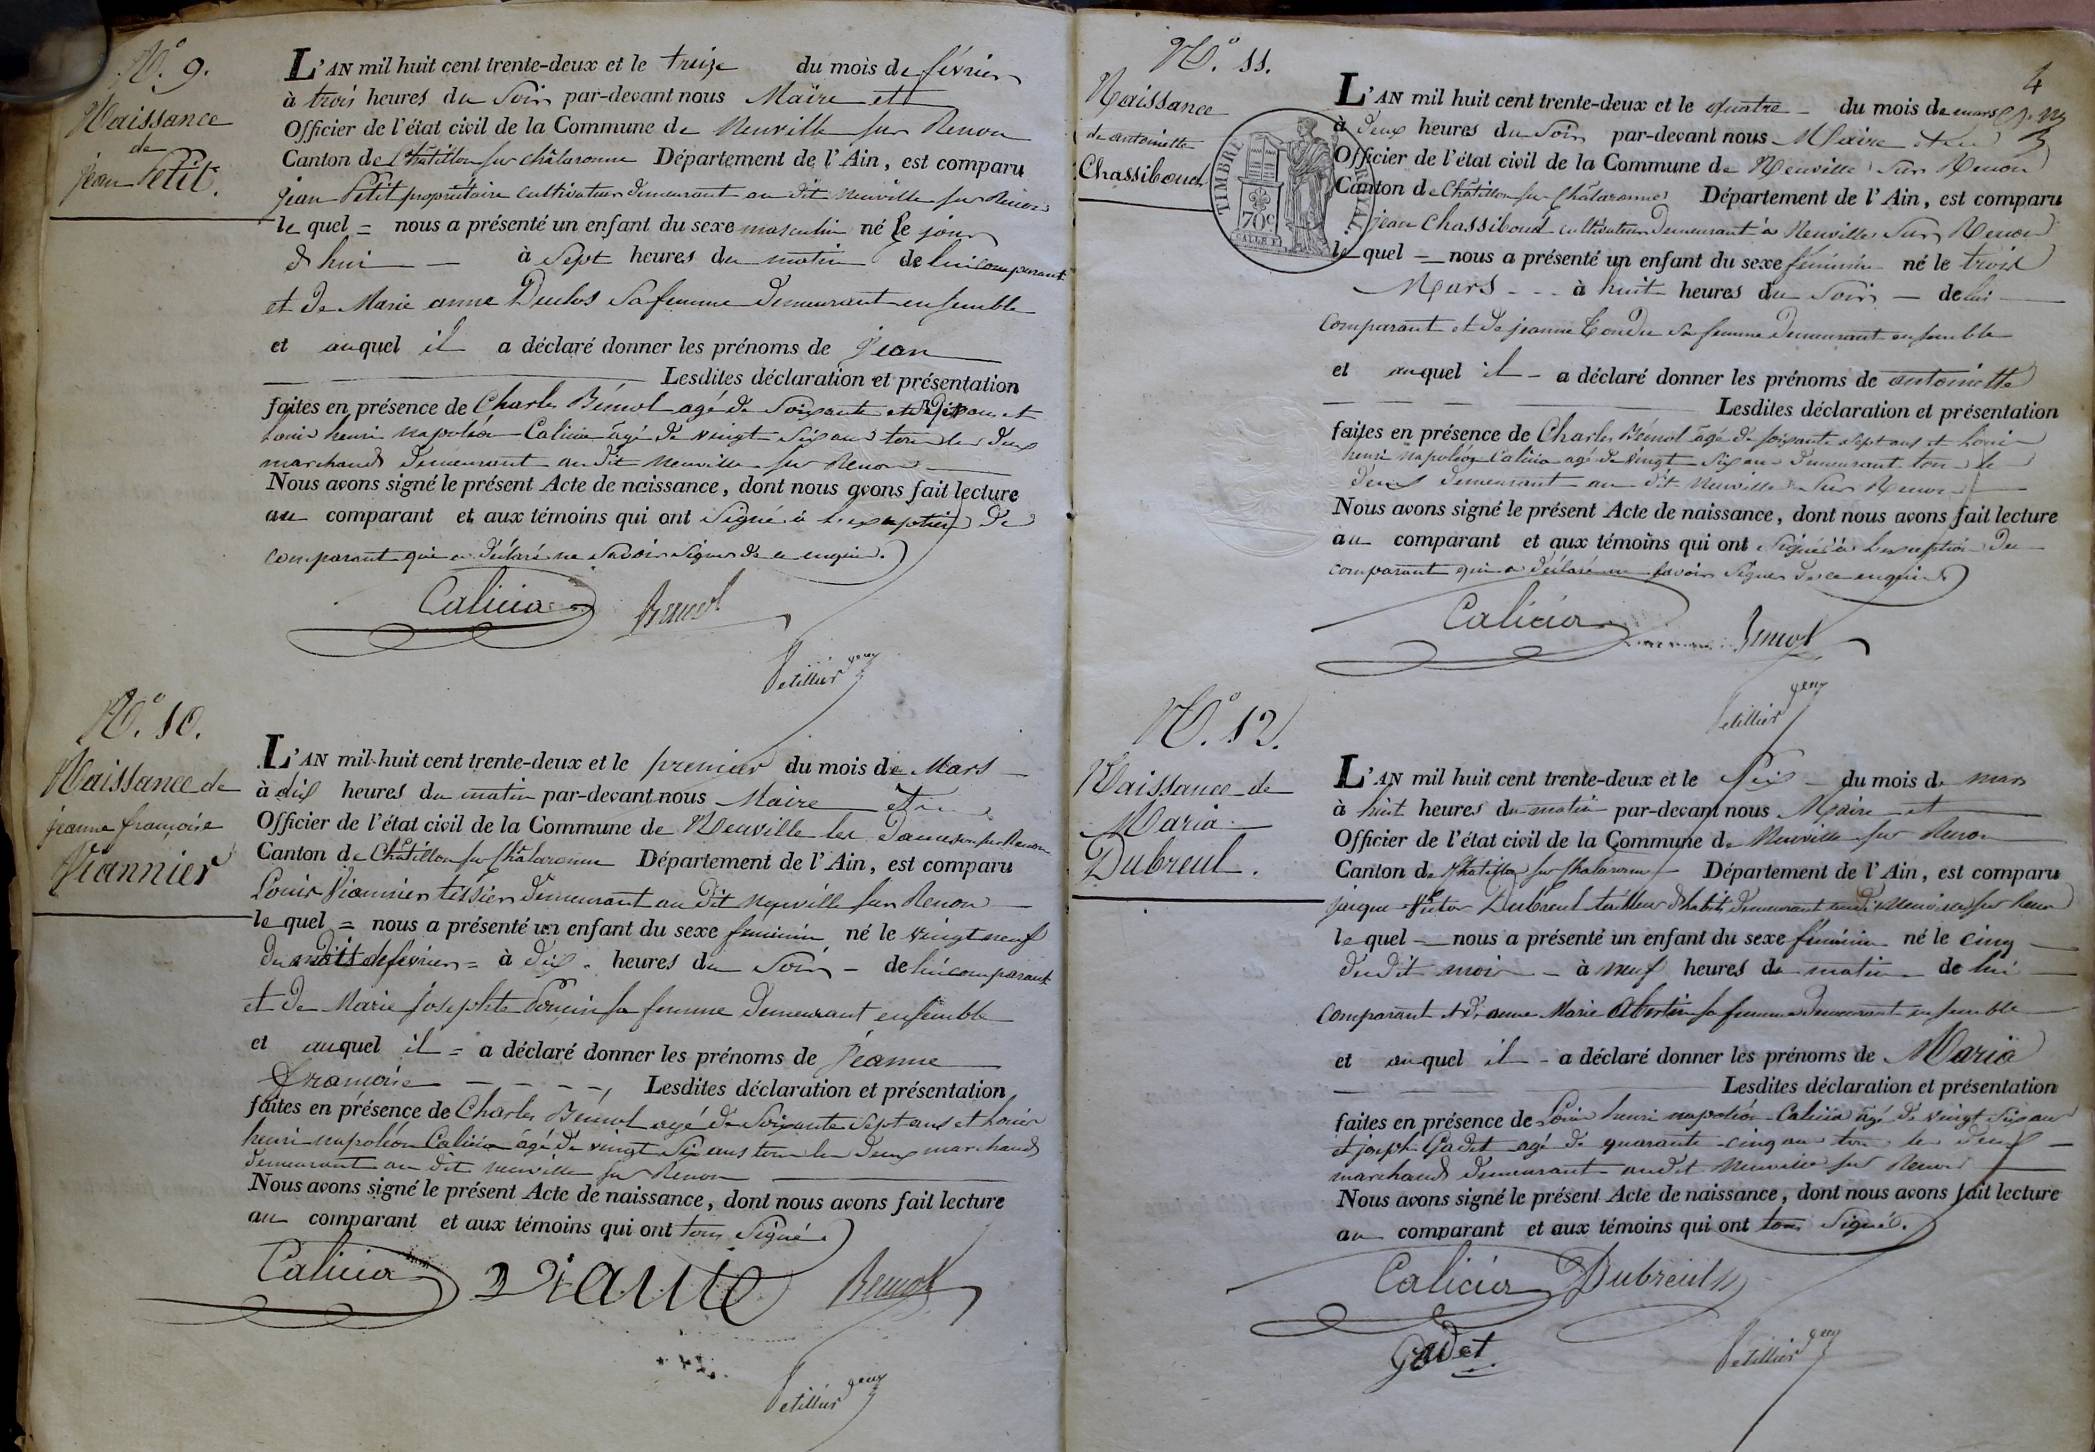 N.° 9.
Naissance
de
jean Petit.
L'AN mil huit cent trente-deux et le treize du mois de février
à trois heures du Soir par-devant nous Maire et
Officier de l'état civil de la Commune de Neuville sur Renon
Canton de Châtillon sur châlaronne Département de l'Ain, est comparu
jean Petit propriétaire cultivateur demeurant au dit neuville sur Renon
le quel = nous a présenté un enfant du sexe masculin né le jour
d'hui — à Sept heures du matin de lui comparant
et de Marie anne Duclos sa femme demeurant ensemble
et auquel il a déclaré donner les prénoms de jean
Lesdites déclaration et présentation
faites en présence de Charles Bémol agé de Soixante et ans et
Louis henri napoléon Calicia âgé de vingt Six ans tous les deux
marchands demeurant au dit neuville sur Renon
Nous avons signé le présent Acte de naissance, dont nous avons fait lecture
au comparant et aux témoins qui ont Signé à l'exception de
comparant qui a déclaré ne Savoir Signer de ce enquis.
Calicia Bémol
Petillier
N.° 10.
Naissance de
jeanne françoise
Viannier
L'AN mil huit cent trente-deux et le premier du mois de Mars
à dix heures du matin par-devant nous Maire et
Officier de l'état civil de la Commune de Neuville les Dames sur Renon
Canton de Châtillon sur Châlaronne Département de l'Ain, est comparu
Louis Viannier tissier demeurant au dit neuville sur Renon
le quel = nous a présenté un enfant du sexe feminin né le vingt neuf
du mois de fevrier = à dix heures du Soir — de lui comparant
et de Marie Josephte sa femme demeurant ensemble
et auquel il = a déclaré donner les prénoms de jeanne
françoise Lesdites déclaration et présentation
faites en présence de Charles Bémol agé de Soixante Sept ans et Louis
henri napoléon Calicia âgé de vingt Six ans tous les deux marchands
demeurant au dit neuville sur Renon
Nous avons signé le présent Acte de naissance, dont nous avons fait lecture
au comparant et aux témoins qui ont tous Signé.
Calicia Bémol
Petillier
4
N.° 11.
Naissance
de antoinette
Chassiboud
TIMBRE ROYAL.
70 c
L'AN mil huit cent trente-deux et le quatre — du mois de mars
à deux heures du Soir par-devant nous Maire et
Officier de l'état civil de la Commune de Neuville Sur Renon
Canton de Châtillon sur Châlaronne Département de l'Ain, est comparu
jean Chassiboud cultivateur demeurant à Neuville Sur Renon
le quel = nous a présenté un enfant du sexe féminin né le trois
Mars - - - à huit heures du Soir — de lui
comparant et de jeanne Tondu sa femme demeurant ensemble
et auquel il — a déclaré donner les prénoms de antoinette
Lesdites déclaration et présentation
faites en présence de Charles Bémol âgé de soixante sept ans et Louis
henri napoléon Calicia agé de vingt Six ans demeurant tous le
deux demeurant au dit neuville Sur Renon
Nous avons signé le présent Acte de naissance, dont nous avons fait lecture
au comparant et aux témoins qui ont Signé à l'exception du
comparant qui a déclaré ne savoir Signer de ce enquis
Calicia Bémol
Petillier
N.° 12.
Naissance de
Maria
Dubreul.
L'AN mil huit cent trente-deux et le Six — du mois de mars
à huit heures du matin par-devant nous Maire et
Officier de l'état civil de la Commune de Neuville sur Renon
Canton de Châtillon sur Chalaronne Département de l'Ain, est comparu
jacque Victor Dubreul tailleur d'habits demeurant audit Neuville sur Renon
le quel — nous a présenté un enfant du sexe féminin né le cinq
dudit mois — à neuf heures du matin — de lui
comparant et d'anne Marie sa femme demeurant ensemble
et auquel il — a déclaré donner les prénoms de Maria
Lesdites déclaration et présentation
faites en présence de Louis henri napoléon Calicia âgé de vingt Six ans
et joseph Gadet agé de quarante cinq ans tous les deux
marchands demeurant audit Neuville sur Renon
Nous avons signé le présent Acte de naissance, dont nous avons fait lecture
au comparant et aux témoins qui ont tous Signé.
Calicia Dubreul
Gadet
Petillier